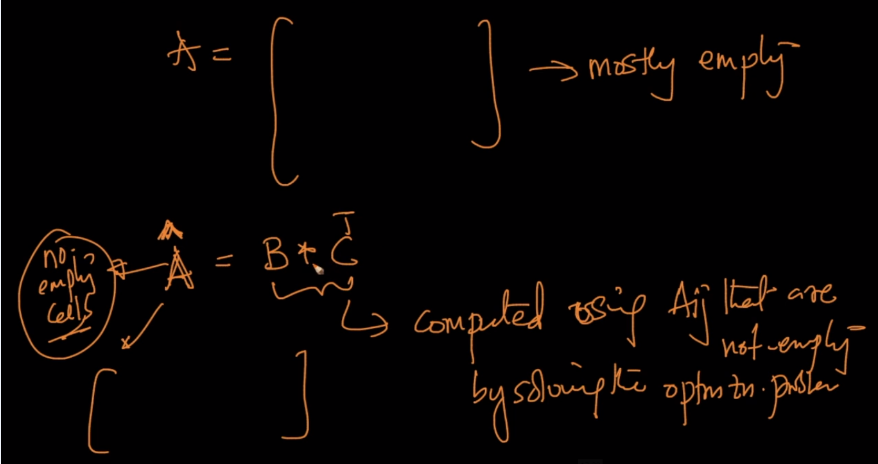 A = [ ] → mostly empty
Â = B * Cᵀ
no empty cells
computed using Aij that are not-empty
by solving the optmzn. problem
[ ]